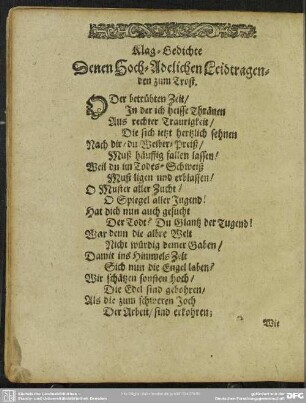 Klag-Gedichte
Denen Hoch-Adelichen Leidtragen-
den zum Trost.
O Der betrübten Zeit/
In der ich heisse Thränen
Aus rechter Traurigkeit/
Die sich ietzt hertzlich sehnen
Nach dir/du Weiber-Preiß/
Muß häuffig fallen lassen/
Weil du im Todes-Schweiß
Must ligen und erblassen/
O Muster aller Zucht/
O Spiegel aller Jugend!
Hat dich nun auch gesucht
Der Todt? Du Glantz der Tugend!
War denn die albre Welt
Nicht würdig deiner Gaben/
Damit ins Himmels-Zelt
Sich nun die Engel laben?
Wir schätzen sonsten hoch/
Die Edel sind gebohren/
Als die zum schweren Joch
Der Arbeit/sind erkohren;
Wie